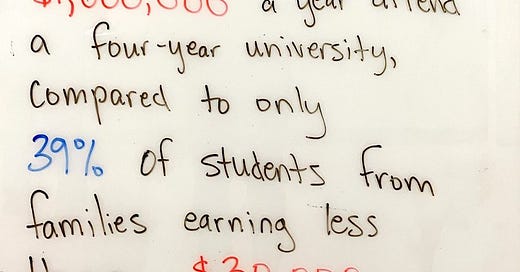 $1,000,000 a year attend
a four-year university,
Compared to only
39% of students from
families earning less
$30,000